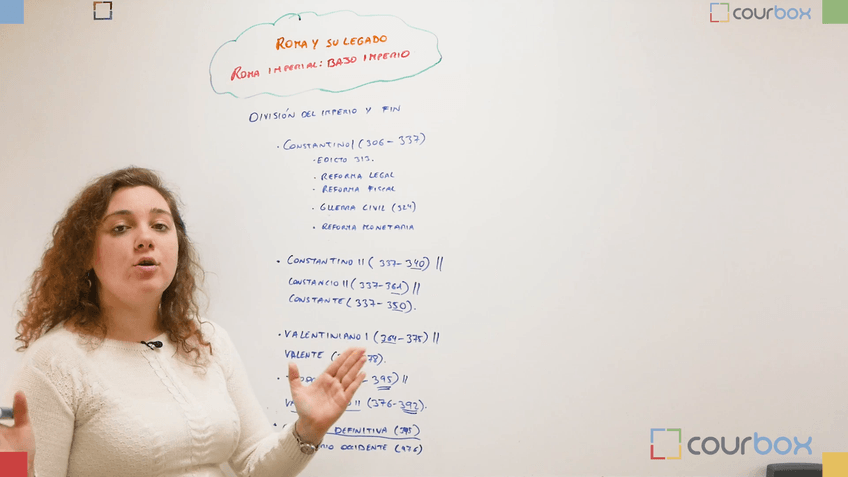 courbox
ROMA Y SU LEGADO
ROMA IMPERIAL: BAJO IMPERIO
DIVISIÓN DEL IMPERIO Y FIN
· CONSTANTINO I (306-337)
· EDICTO 313.
· REFORMA LEGAL
· REFORMA FISCAL
· GUERRA CIVIL (324)
· REFORMA MONETARIA
· CONSTANTINO II (337-340) ||
CONSTANCIO II (337-361) ||
CONSTANTE (337-350).
· VALENTINIANO I (364-375) ||
VALENTE
395) ||
II (376-392).
DEFINITIVA (395)
OCCIDENTE (476)
courbox